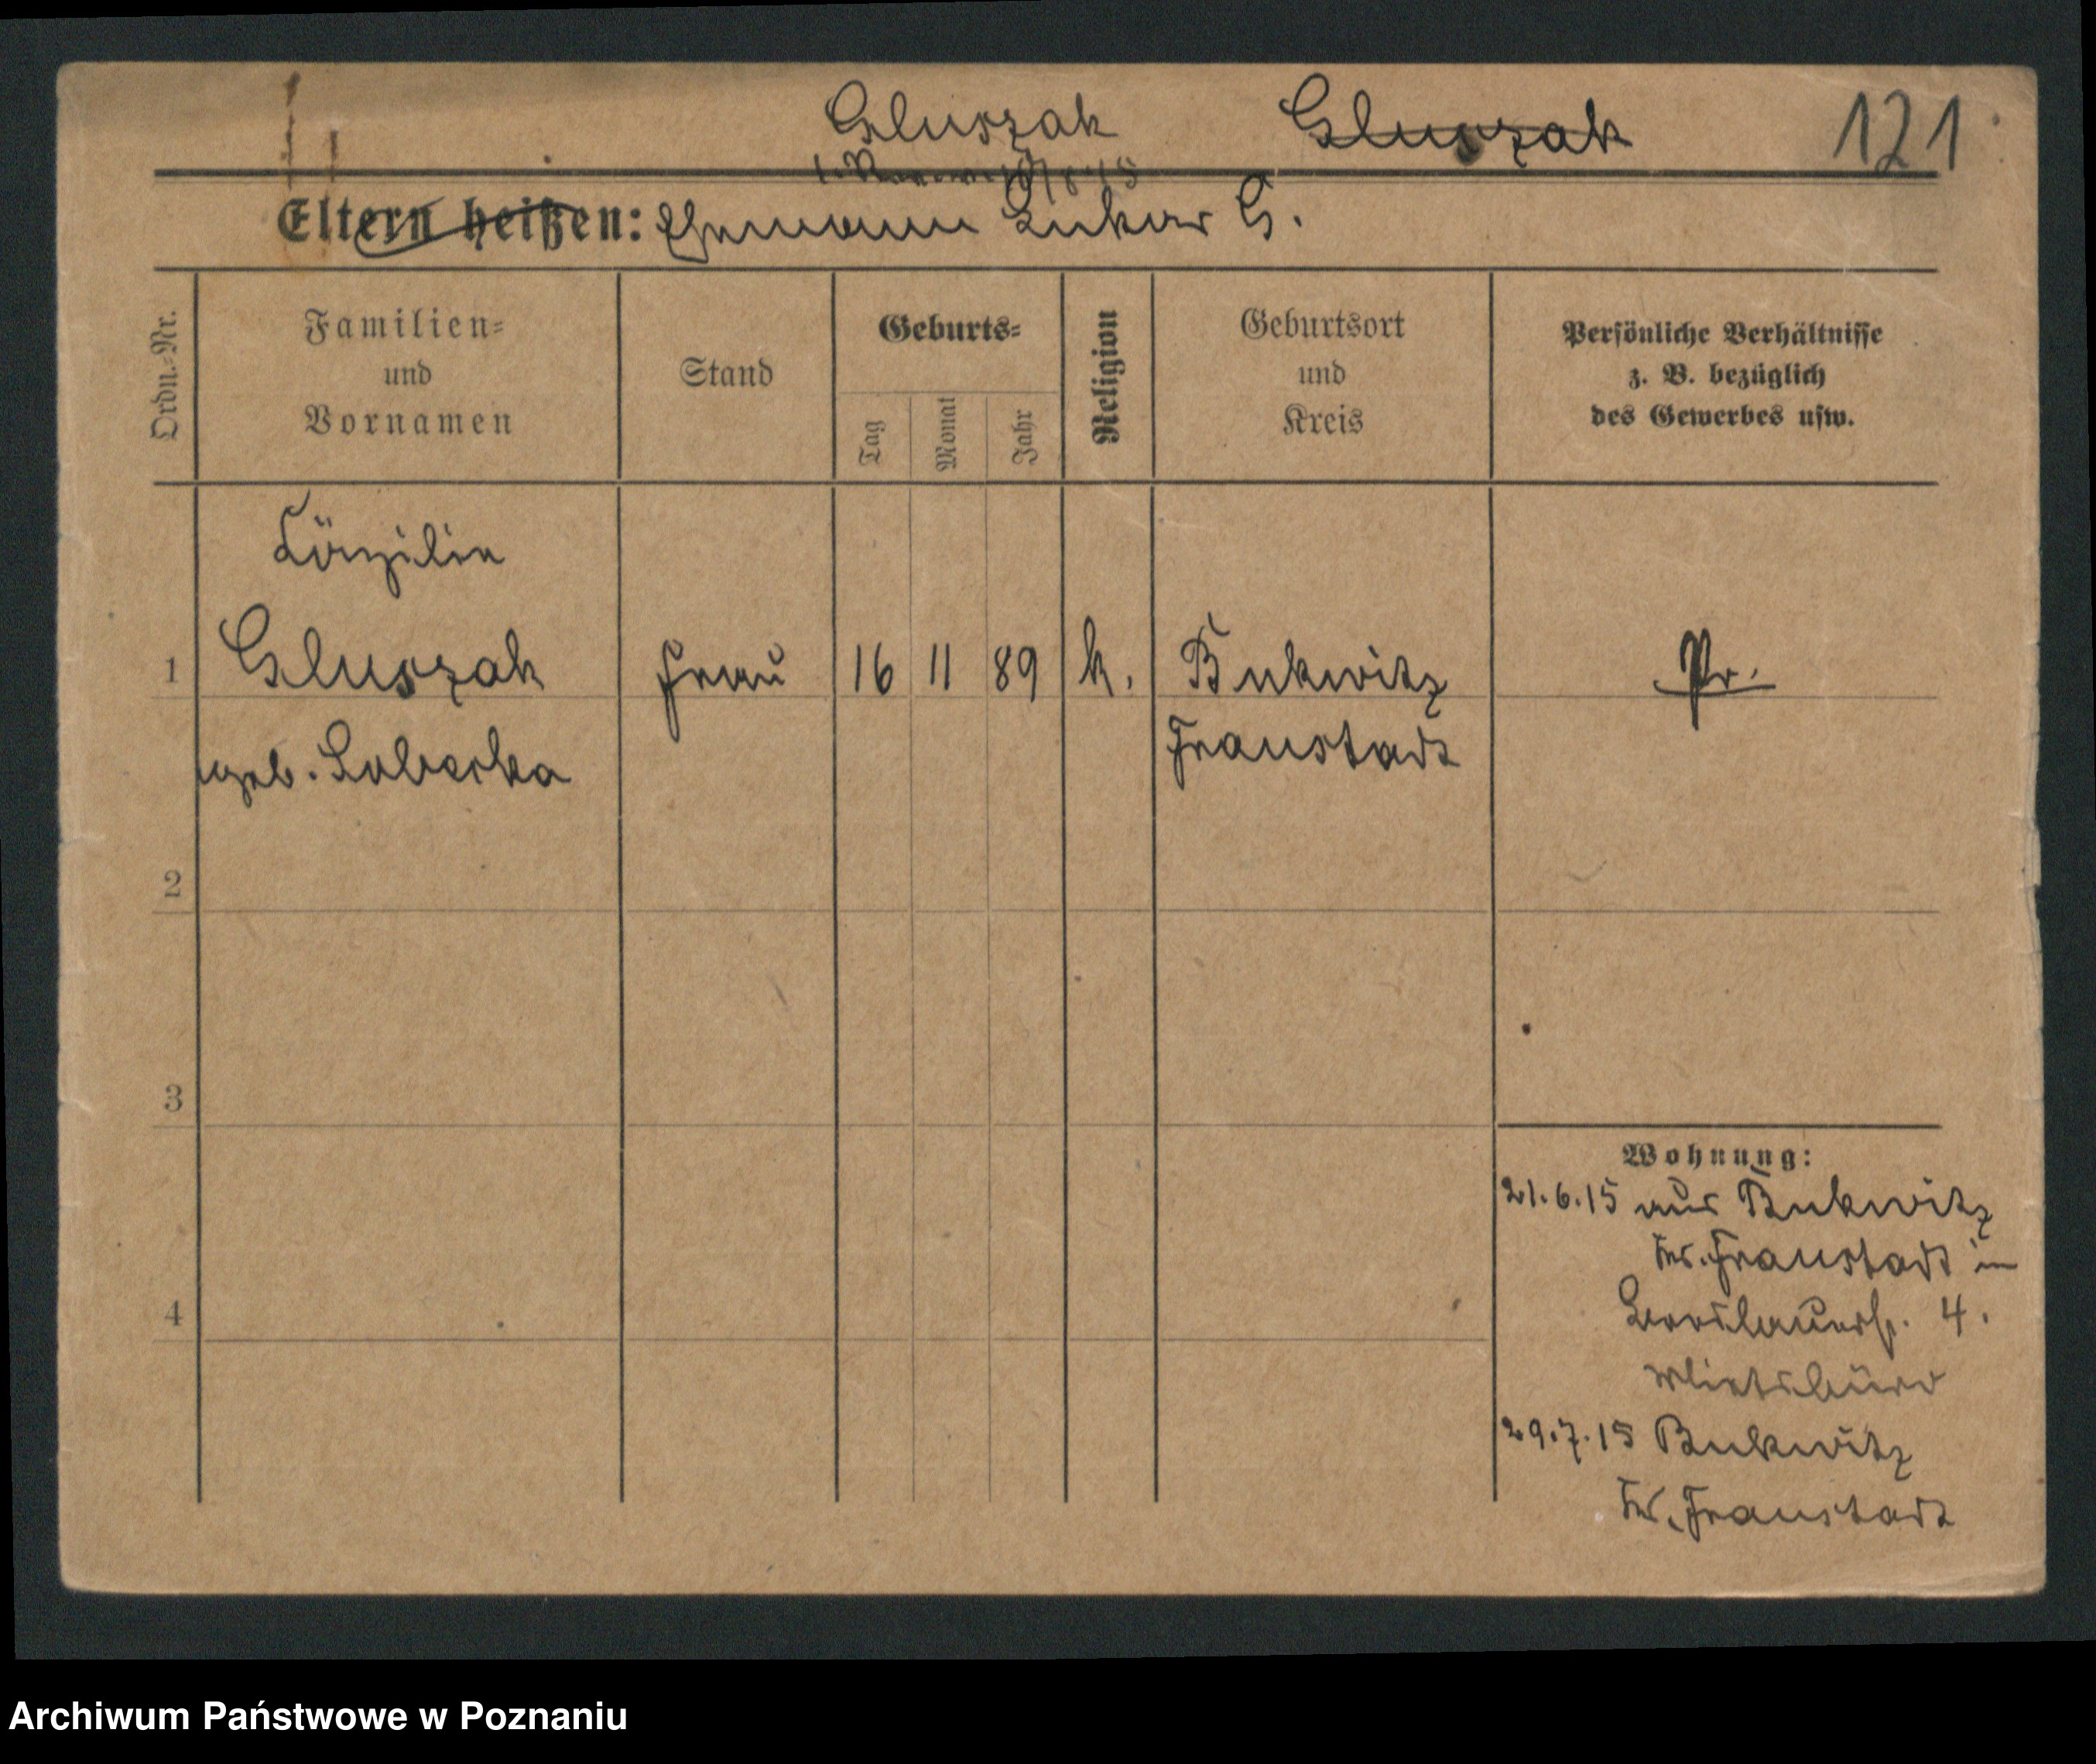 Gluszak Gluszak 121
Eltern heißen: Ehemann Lukas G.
Ordn.-Nr.
Familien-
und
Vornamen
Stand
Geburts-
Tag
Monat
Jahr
Religion
Geburtsort
und
Kreis
Persönliche Verhältnisse
z. B. bezüglich
des Gewerbes usw.
Cäzilia
1 Gluszak Frau 16 11 89 k. Bukwitz Pr.
geb. Fraustadt
2
3
4
Wohnung:
21.6.15 aus Bukwitz
Kr. Fraustadt in
4.
Mietsbüro
29.7.15 Bukwitz
Kr. Fraustadt
Archiwum Państwowe w Poznaniu